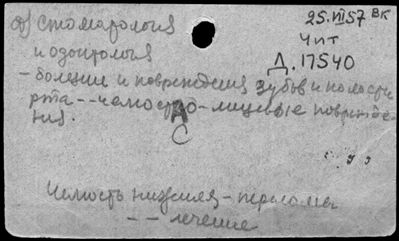 25.VII 57 ВК
Чит
Д.17540
а) Стоматология
и одонтология
- болезни и повреждения зубов и полости
рта -- челюстно-лицевые поврежде-
ния.
А
С
Челюсть нижняя - переломы
- - лечение